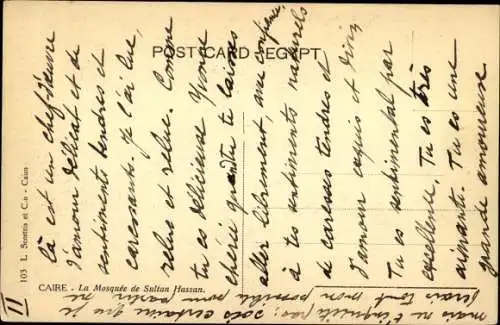 POST CARD - EGYPT
là est un chef-d'œuvre
d'amour délicat et de
sentiments tendres et
caressants. Je l'ai lue,
relue et relue. Comme
tu es délicieuse Yvonne
chérie quand tu te laisses
aller librement, avec confiance,
à tes sentiments naturels
de caresses tendres et
d'amour exquis et
Tu es sentimental par
excellence, Tu es très
aimante. Tu es une
grande amoureuse
mais ne t'inquiète pas; sois certaine que je
ferais tout mon possible pour partir
CAIRE. - La Mosquée de Sultan Hassan.
103 L. Scortzis et C.ie - Caire
11